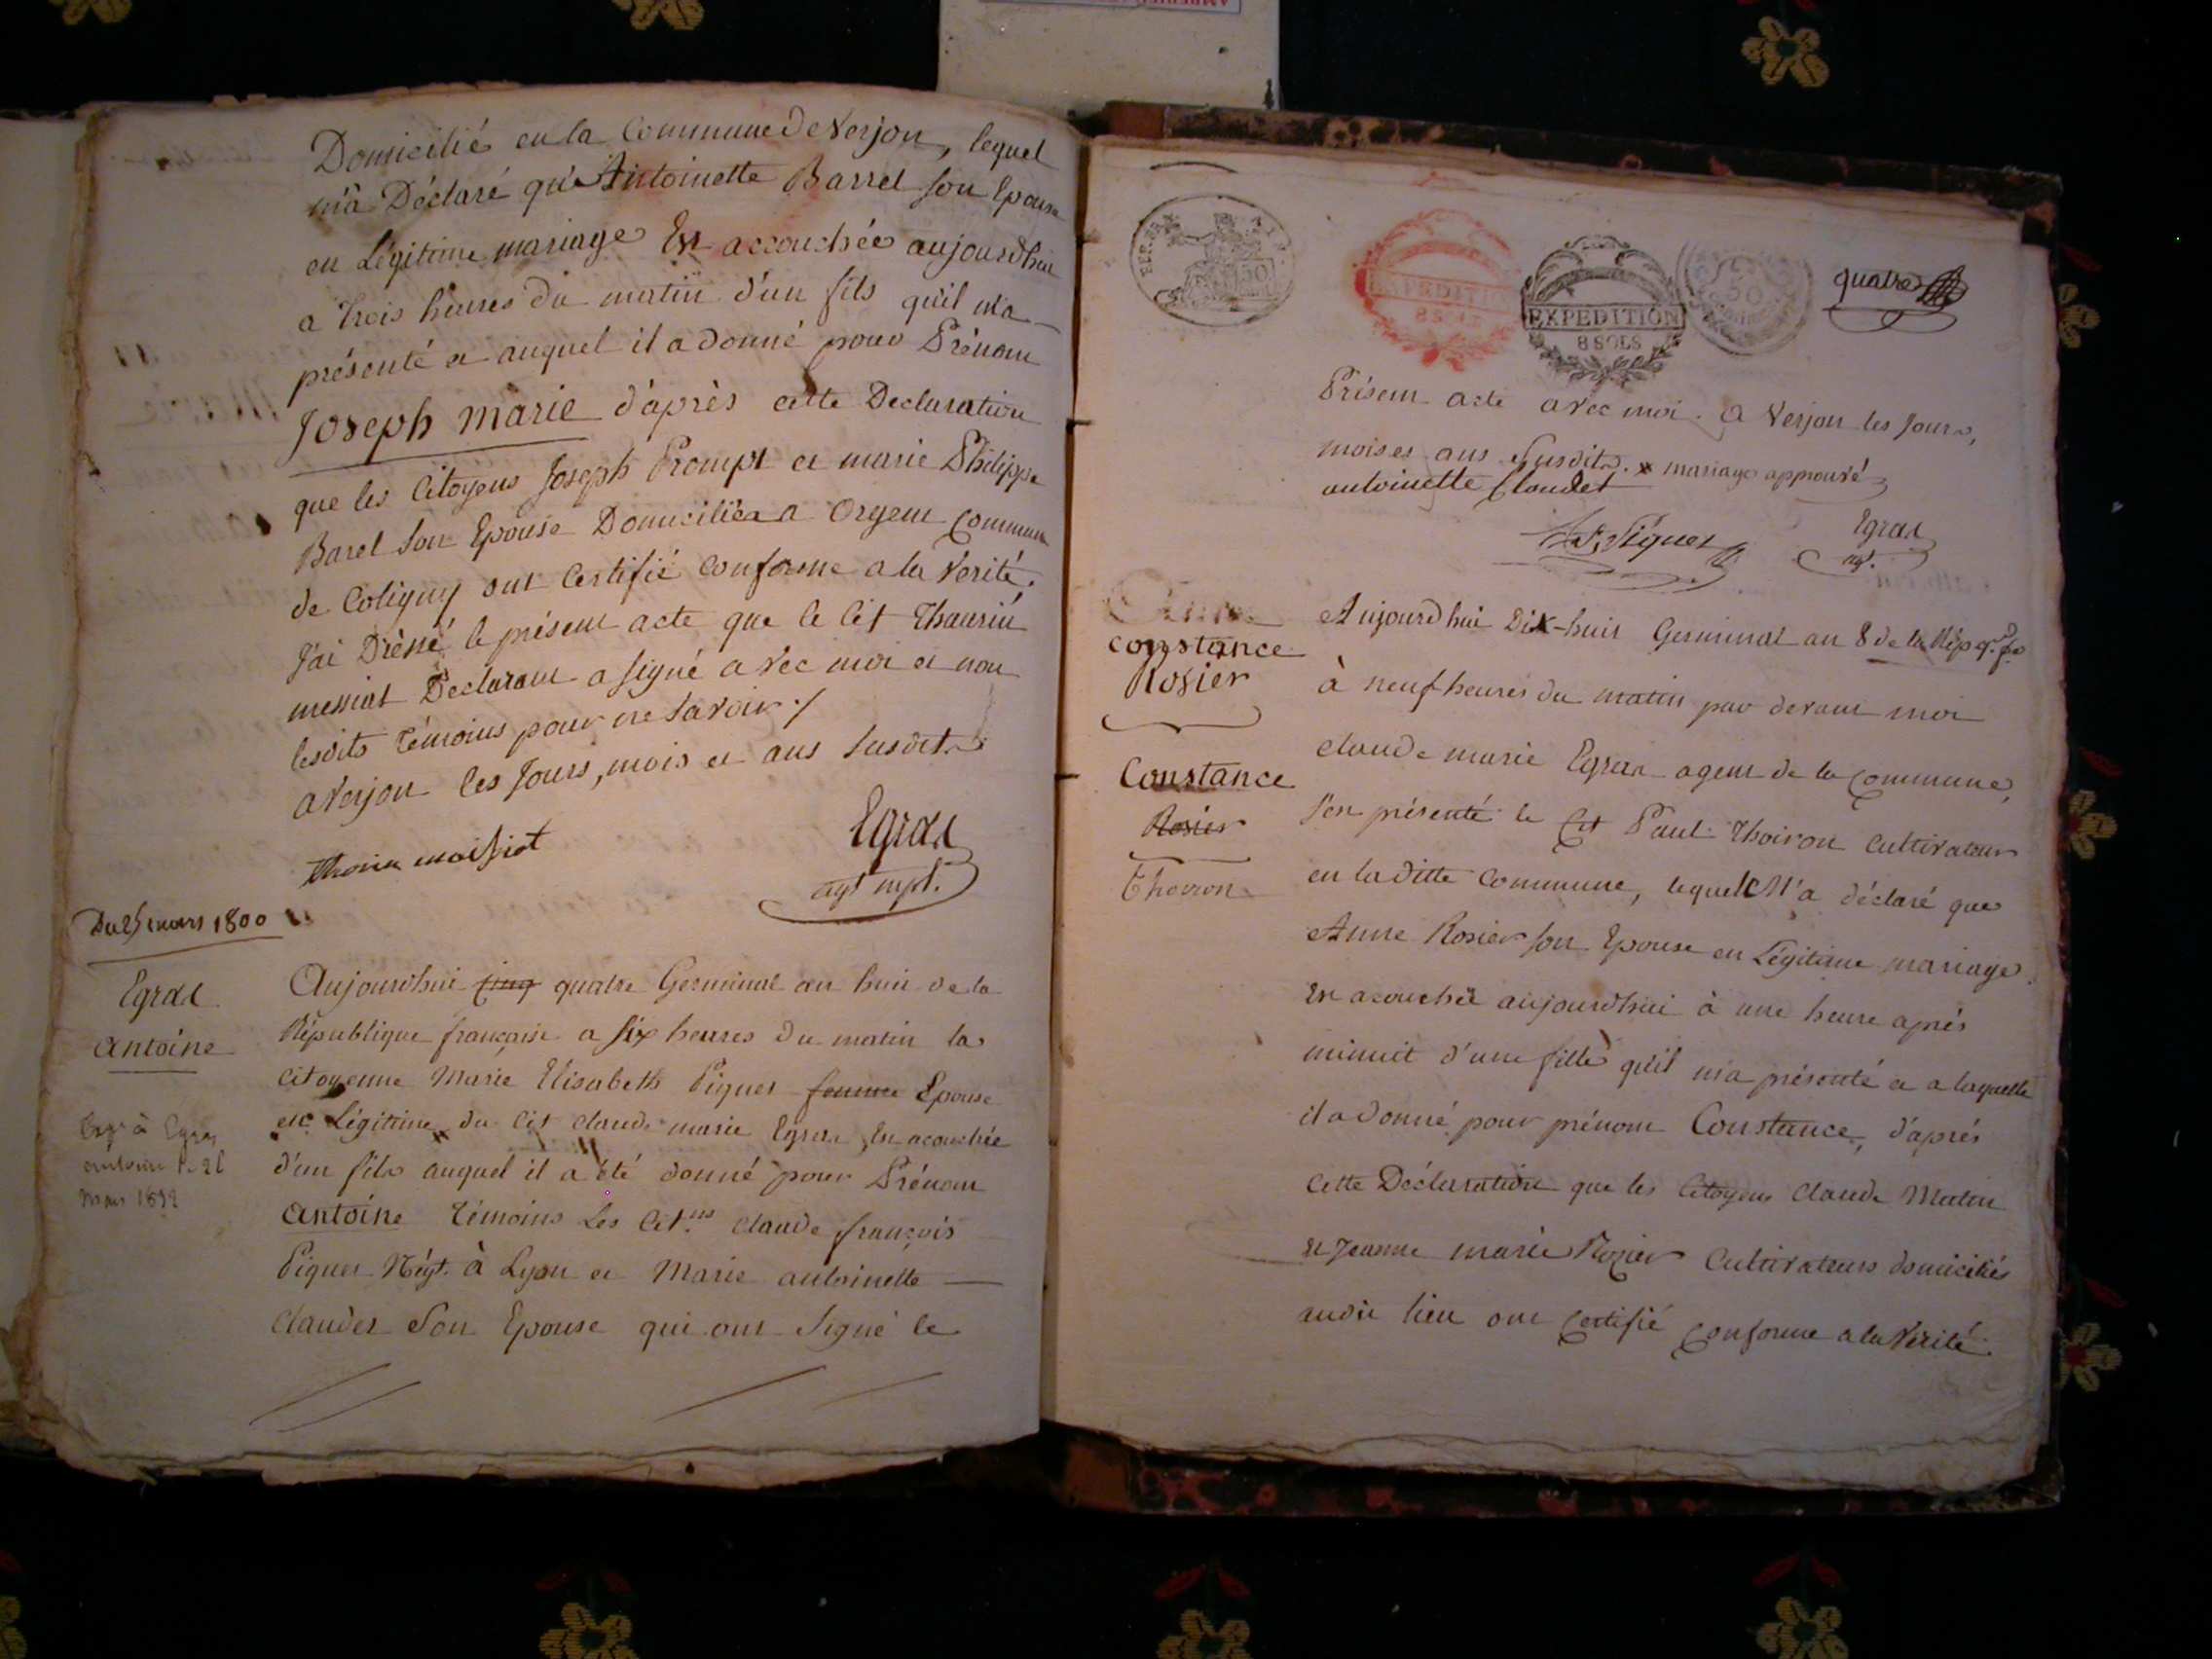 Domicilié en la Commune de Verjon, lequel
m'a Déclaré qu'e Antoinette Barrel son Epouse
en Légitime mariage Est accouchée aujourdhui
a trois heures du matin d'un fils qu'il m'a
présenté et auquel il a donné pour Prénom
Joseph Marie d'après cette Declaration
que les Citoyens Joseph Prompt et marie Philippe
Barel son Epouse Domiciliés a Orgent Commune
de Coligny ont Certifié Conforme a la Vérité.
J'ai Dréssé le présent acte que le Cit Thaurin
messiat Declarant a signé avec moi et non
lesdits témoins pour ne savoir ./
a Verjon les Jours, mois et ans susdits
Egral
agt mpl.
Du 25 mars 1800
Egral
antoine
Aujourdhui cinq quatre Germinal an huit de la
République française a six heures du matin la
Citoyenne Marie Elisabeth Piquet femme Epouse
en Légitime x du Cit claude marie Egral Est acouchée
d'un fils auquel il a été donné pour Prénom
antoine témoins Les Cit.ns claude françois
Piquet Négt. à Lyon et Marie antoinette
claudet Son Epouse qui ont signé le
EXPEDITION
8 SOLS
EXPEDITION
8 SOLS
50
quatre
Présent acte avec moi. a Verjon les Jours,
mois et ans susdits. x mariage approuvé
antoinette Claudet
Piquet
Egral
agt.
constance
Rosier
Constance
Rosier
Thoiron
Aujourdhui Dix-huit Germinal an 8 de la Rép. que f.se
à neuf heures du matin par devant moi
claude marie Egral agent de la Commune,
s'est présenté le Cit Paul Thoiron Cultivateur
en la ditte Commune, lequel M'a déclaré que
Anne Rosier son Epouse en Légitime mariage
Est acouchée aujourdhui à une heure après
minuit d'une fille qu'il m'a présenté et a laquelle
il a donné pour prénom Constance, d'après
cette Déclaration que les Citoyens Claude Mutin
et Jeanne marie Rozier Cultivateurs domiciliés
audit lieu ont Certifié Conforme a la Vérité.